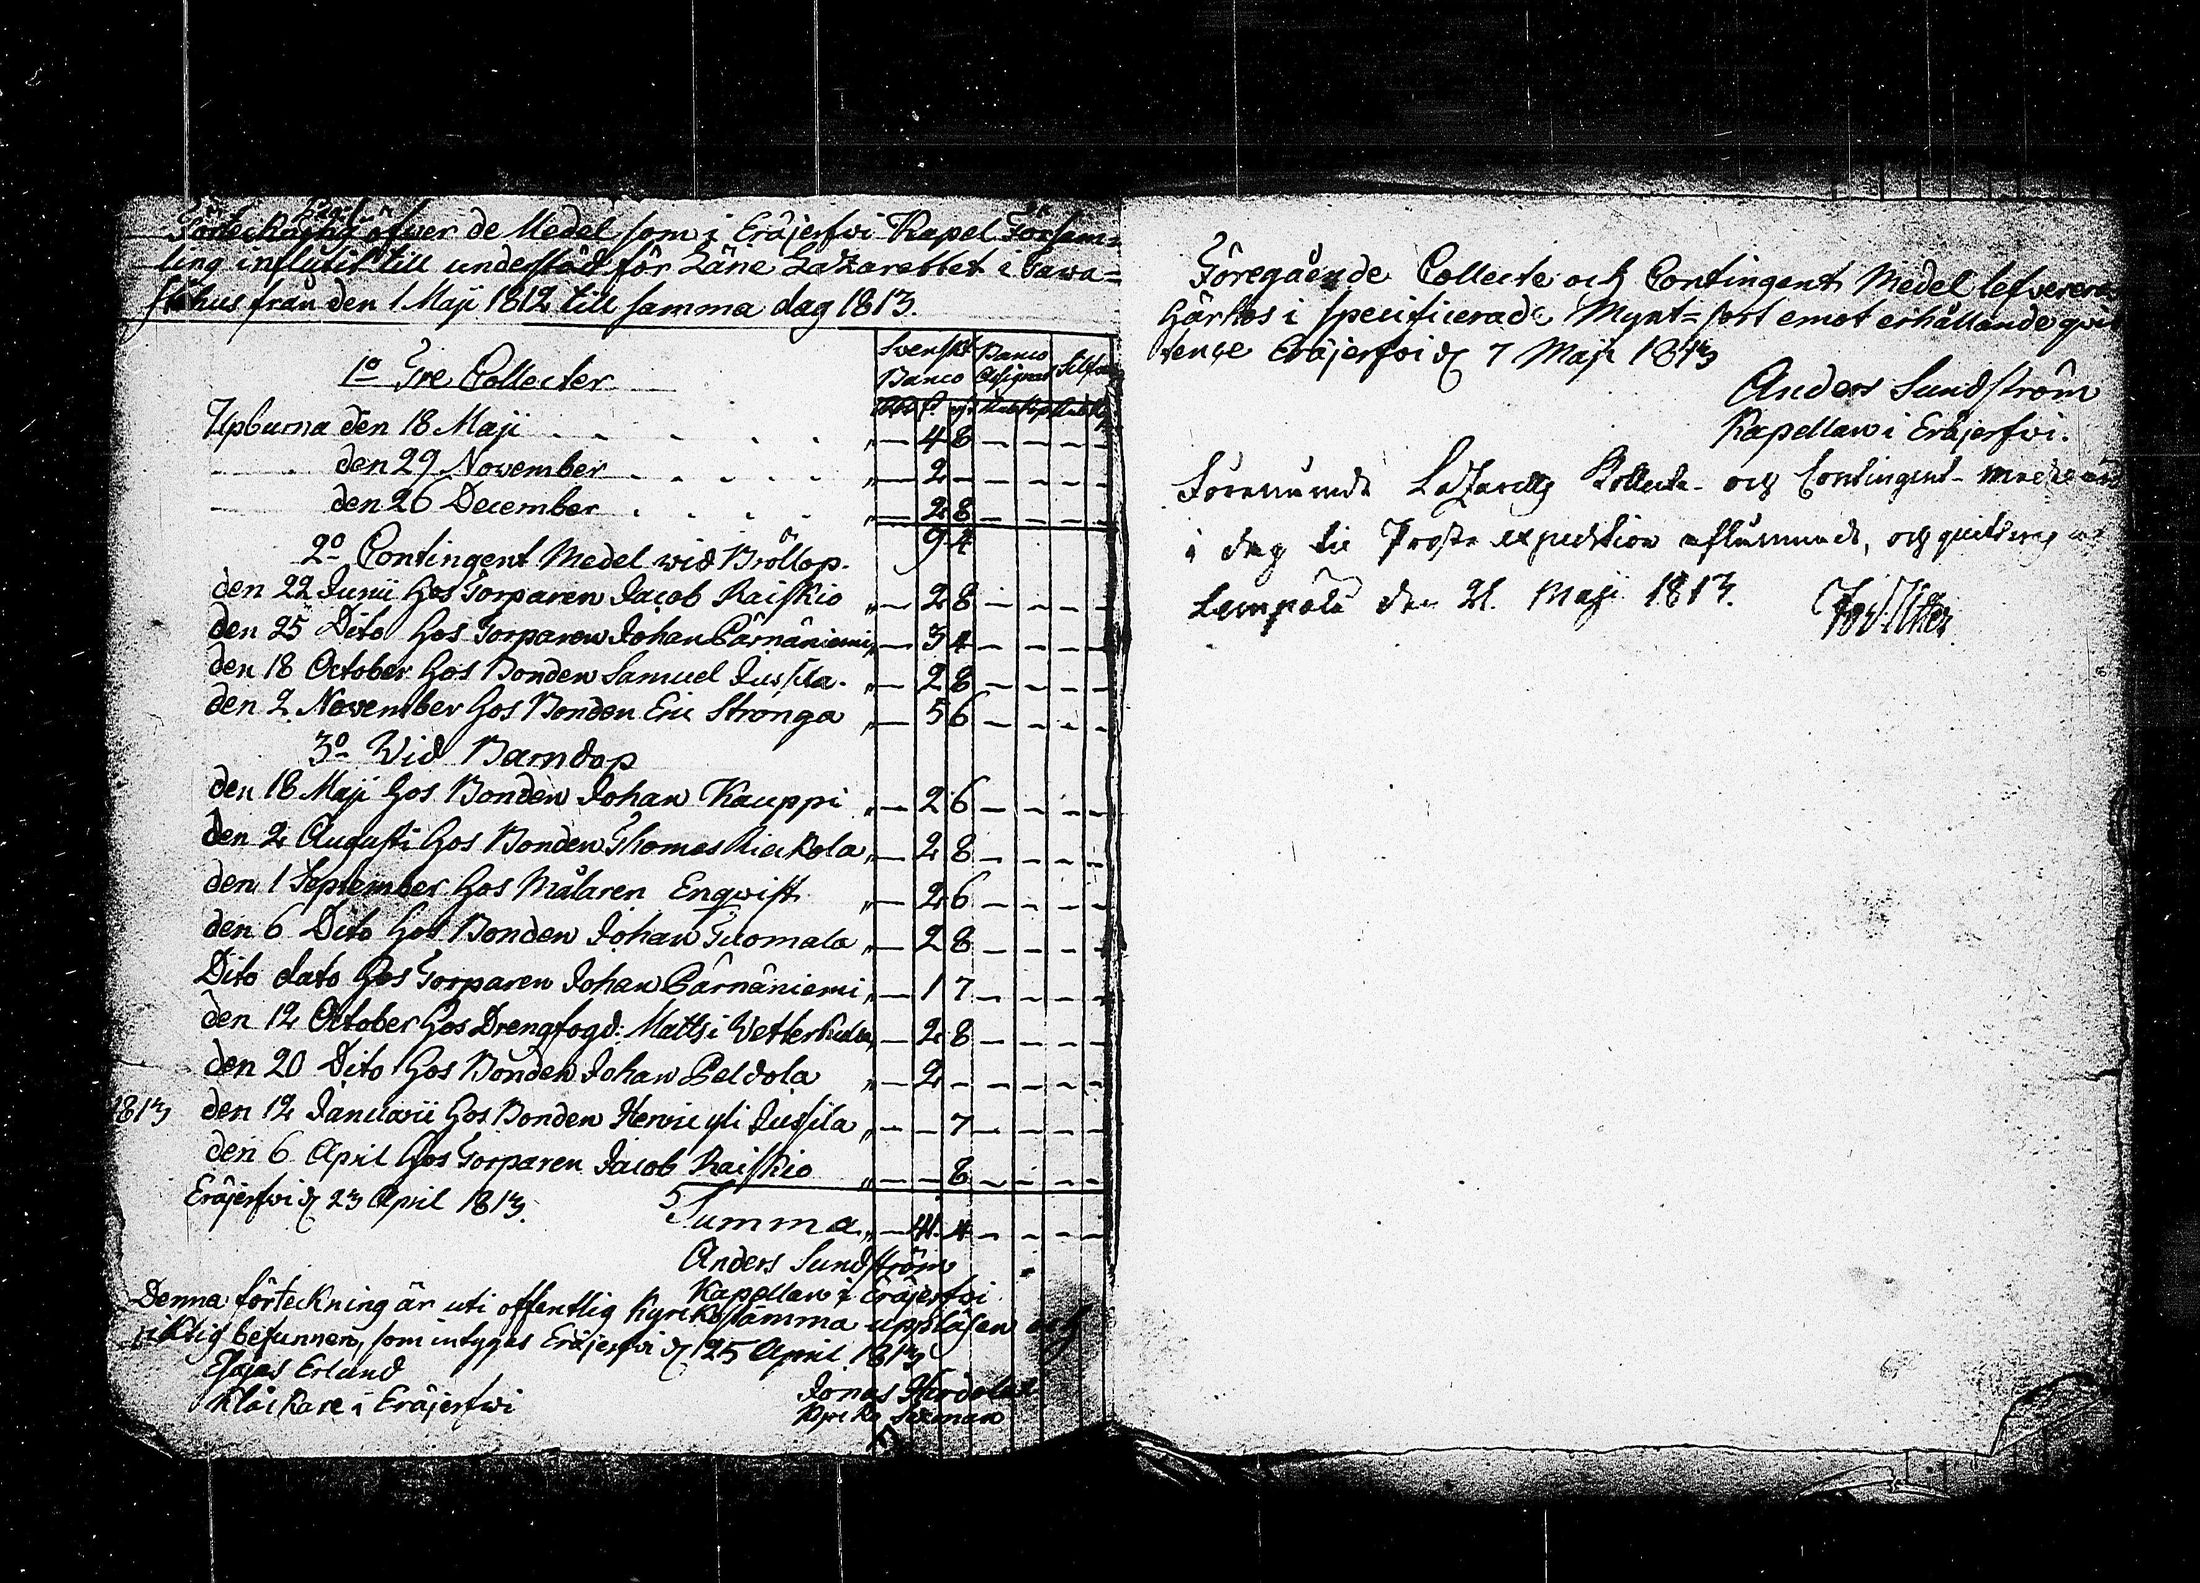 Förteckning öfwer de Medel som i Eräjerfwi Kapel Församˍ
ling influtit till understöd för Läne Lazarettet i Tawa=
stehus från den 1 Maji 1812 till samma dag 1813.
Svenskt Banco Silf
Banco Assignat
1o Tre Collecter
Rd s rst Rub Kop Rub K
Upburna den 18 Maji . . . . . . „ — 4 8 — — — —
den 29 November . . . . . „ — 2 — — — — —
den 26 December . . . . „ — 2 8 — — — —
9 4
2o Contingent Medel wid Bröllop.
den 22 Junii hos Torparen Jacob Raiskio „ — 2 8 — — — —
den 25 Dito hos Torparen Johan Pärnäniemi „ — 3 4 — — — —
den 18 October hos Bonden Samuel Jussila. „ — 2 8 — — — —
den 2 November hos Bonden Eric Strönga „ — 5 6 — — — —
3o Wid Barndop
den 18 Maji hos Bonden Johan Kauppi „ — 2 6 — — — —
den 2 Augusti hos Bonden Thomas Rieckola „ — 2 8 — — — —
den 1 September hos Målaren Enqwist „ — 2 6 — — — —
den 6 Dito hos Bonden Johan Tuomala „ — 2 8 — — — —
Dito dato hos Torparen Johan Pärnäniemi „ — 1 7 — — — —
den 12 October hos Drengfogd: Matts i Wetterkulla „ — 2 8 — — — —
den 20 Dito hos Bonden Johan Peldola „ — 2 — — — — —
1813 den 12 Januarii hos Bonden Henric yli Jussila „ — — 7 — — — —
den 6 April hos Torparen Jacob Raiskio „ — — 8 — — — —
Eräjerfwi d 23 April 1813. Summa „ — 41 4 — — — —
Anders Sundström
Kapellan i Eräjerfwi
Denna förteckning är uti offentlig Kyrkostämma uppläsen och
riktig befunnen, som intygas Eräjerfwi d 25 April 1813
Esaias Erlund
Klåckare i Eräjerfwi
Jonas
Kyrko Sexman
Föregående Collecte och Contingent Medel lefverera
härhos i specificerade Mynt=sort emot erhållande qvit
tence Eräjerfwi d 7 Maji 1813
Anders Sundström
Kapellan i Eräjerfwi.
Förenämde Lazaretts Kollecte- och Contingent-medel äro
i dag till Prosts expedition aflämnade, och quitteras
Lempälä den 21. Maji 1813.